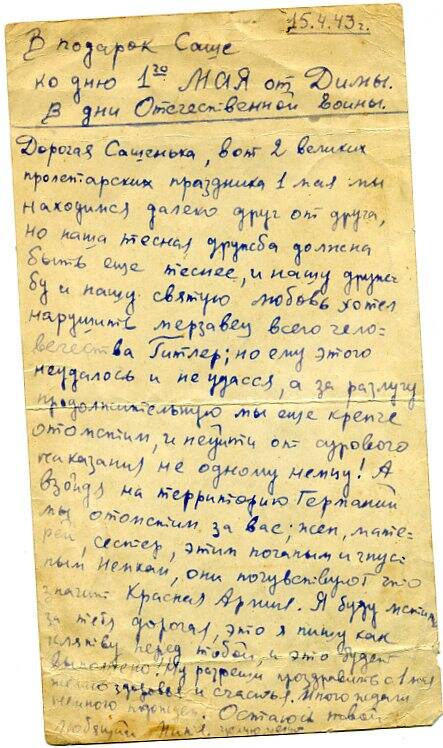 15.4.43г.
В подарок Саше
ко дню 1го МАЯ от Димы.
В дни Отечественной Войны.
Дорогая Сашенька, вот 2 великих
пролетарских праздника 1 мая мы
находимся далеко друг от друга,
но наша тесная дружба должна
быть еще теснее, и нашу друж-
бу и нашу святую любовь хотел
нарушить мерзавец всего чело=
вечества Гитлер; но ему этого
неудалось и не удасся, а за разлуку
продолжительную мы еще крепче
отомстим, и неуйти от сурового
наказания не одному немцу! А
взойдя на территорию Германии
мы отомстим за вас; жен, мате=
рей, сестер, этим поганым и гнус=
ным Немкам, они почувствуют что
значит Красная Армия. Я буду мстить
за тебя дорогая, это я пишу как
клятву перед тобой, и это будет
выполнено! Ну разреши проздравить с 1 мая
желаю здоровья и счастья. Много ждали
немного подождем. Остаюсь твой
любящий